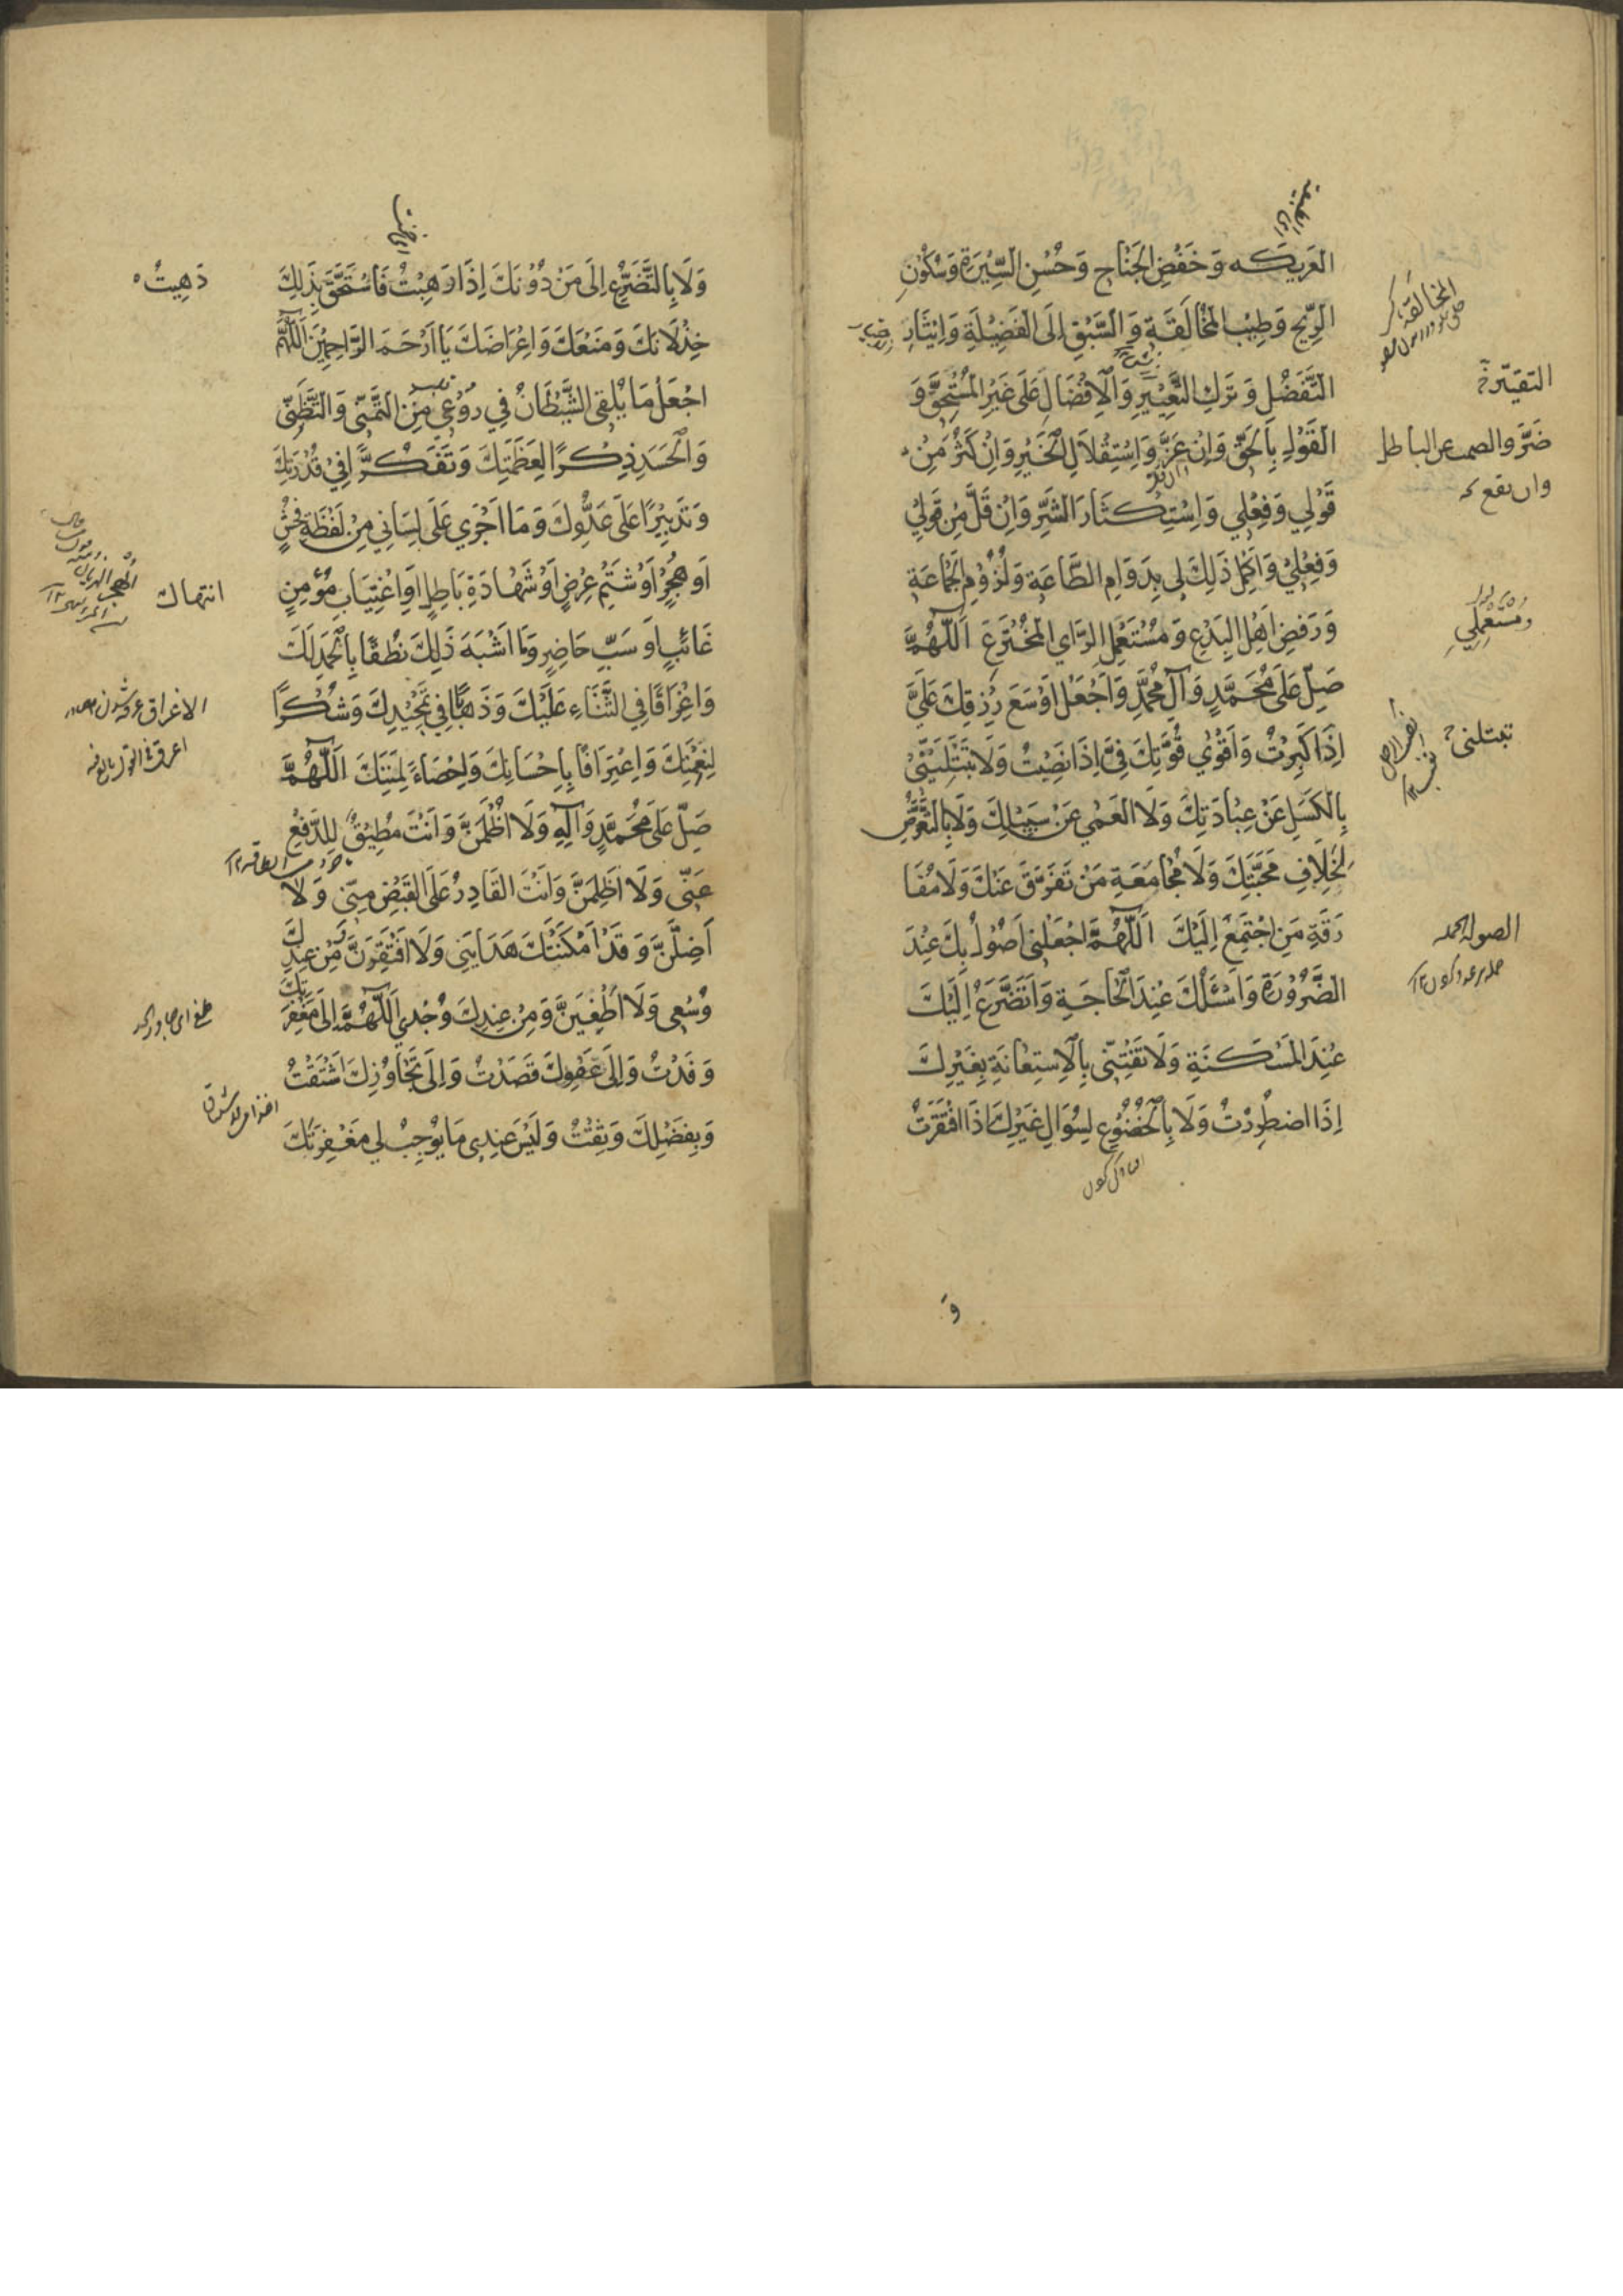 العَرِيكَه وَخَفْضِ الجَنَاحِ وَحُسْنِ السِّيرَةِ وَسُكُونِ
الرِّيحِ وَطِيبِ المُخَالَقَةِ وَالسَّبْقِ اِلَى الفَضِيلَةِ وَاِيثَارِ
التَّفَضُّلِ وَتَرْكِ التَّعْيِيرِ وَالْاِفْضَالَ عَلَى غَيْرِ المُسْتَحِقِّ وَ
القَوْلِ بِالْحَقِّ وَاِنْ عَزَّ وَاِسْتِقْلَالِ الْخَيْرِ وَاِنْ كَثُرَ مِنْ
قَوْلِي وَفِعْلِي وَاِسْتِكْثَارَ الشَّرِّ وَاِنْ قَلَّ مِنْ قَوْلِي
وَفِعْلِي وَاَكْمِلْ ذَلِكَ لِي بِدَوَامِ الطَّاعَةِ وَلُزُومِ الْجَمَاعَةِ
وَرَفْضِ اَهْلِ البِدَعِ وَمُسْتَعْمِلِ الرَّايِ المُخْتَرَعِ اَللّٰهُمَّ
صَلِّ عَلَى مُحَمَّدٍ وَآلِ مُحَمَّدٍ وَاجْعَلْ اَوْسَعَ رِزْقِكَ عَلَيَّ
اِذَا كَبِرْتُ وَاَقْوٰى قُوَّتِكَ فِيَّ اِذَا نَصِبْتُ وَلَا تَبْتَلِيَنِّي
بِالْكَسَلِ عَنْ عِبَادَتِكَ وَلَا العَمٰى عَنْ سَبِيلِكَ وَلَا بِالتَّعَرُّضِ
لِخِلَافِ مَحَبَّتِكَ وَلَا مُجَامَعَةِ مَنْ تَفَرَّقَ عَنْكَ وَلَا مُفَا
رَقَةِ مَنِ اجْتَمَعَ اِلَيْكَ اَللّٰهُمَّ اجْعَلْنِي اَصُولُ بِكَ عِنْدَ
الضَّرُورَةِ وَاَسْئَلُكَ عِنْدَ الْحَاجَةِ وَاَتَضَرَّعُ اِلَيْكَ
عِنْدَ المَسْكَنَةِ وَلَا تَفْتِنِّي بِالْاِسْتِعَانَةِ بِغَيْرِكَ
اِذَا اضْطُرِرْتُ وَلَا بِالْخُضُوعِ لِسُؤَالِ غَيْرِكَ اِذَا افْتَقَرْتُ
وَ
المخالقة
التقتير
ضَرَّ والصمت عن الباطل
وان نفع
وَمُسْتَعْمِلِي
تبتلنی
الصولة الحمله
وَلَا بِالتَّضَرُّعِ اِلَى مَنْ دُونَكَ اِذَا وَهِبْتُ فَاَسْتَحِقَّ بِذَلِكَ
خِذْلَانَكَ وَمَنْعَكَ وَاِعْرَاضَكَ يَا اَرْحَمَ الرَّاحِمِينَ اَللّٰهُمَّ
اجْعَلْ مَا يُلْقِى الشَّيْطَانُ فِي رَوْعِي مِنَ التَّمَنِّي وَالتَّظَنِّي
وَالْحَسَدِ ذِكْرًا لِعَظَمَتِكَ وَتَفَكُّرًا فِي قُدْرَتِكَ
وَتَدْبِيرًا عَلَى عَدُوِّكَ وَمَا اَجْرٰي عَلَى لِسَانِي مِنْ لَفْظَةِ فُحْشٍ
اَو هُجْرٍ اَوْ شَتْمِ عِرْضٍ اَوْ شَهَادَةِ بَاطِلٍ اَوِ اغْتِيَابِ مُؤْمِنٍ
غَائِبٍ اَو سَبِّ حَاضِرٍ وَمَا اَشْبَهَ ذَلِكَ نُطْقًا بِالْحَمْدِ لَكَ
وَاِغْرَاقًا فِي الثَّنَاءِ عَلَيْكَ وَذَهَابًا فِي تَمْجِيدِكَ وَشُكْرًا
لِنِعْمَتِكَ وَاِعْتِرَافًا بِاِحْسَانِكَ وَاِحْصَاءً لِمِنَنِكَ اَللّٰهُمَّ
صَلِّ عَلَى مُحَمَّدٍ وَآلِهِ وَلَا اُظْلَمَنَّ وَاَنْتَ مُطِيقٌ لِلدَّفْعِ
عَنِّي وَلَا اَظْلِمَنَّ وَاَنْتَ القَادِرُ عَلَى القَبْضِ مِنِّي وَلَا
اَضِلَّنَّ وَقَدْ اَمْكَنَتْكَ هِدَايَتِي وَلَا اَفْتَقِرَنَّ وَمِنْ عِنْدِكَ
وُسْعِي وَلَا اَطْغَيَنَّ وَمِنْ عِنْدِكَ وُجْدِي اَللّٰهُمَّ اِلَى مَغْفِرَتِكَ
وَفَدْتُ وَاِلَى عَفْوِكَ قَصَدْتُ وَاِلَى تَجَاوُزِكَ اشْتَقْتُ
وَبِفَضْلِكَ وَثِقْتُ وَلَيْسَ عِنْدِي مَا يُوجِبُ لِي مَغْفِرَتَكَ
دَهِيتُ
انتهاك
الاغراق